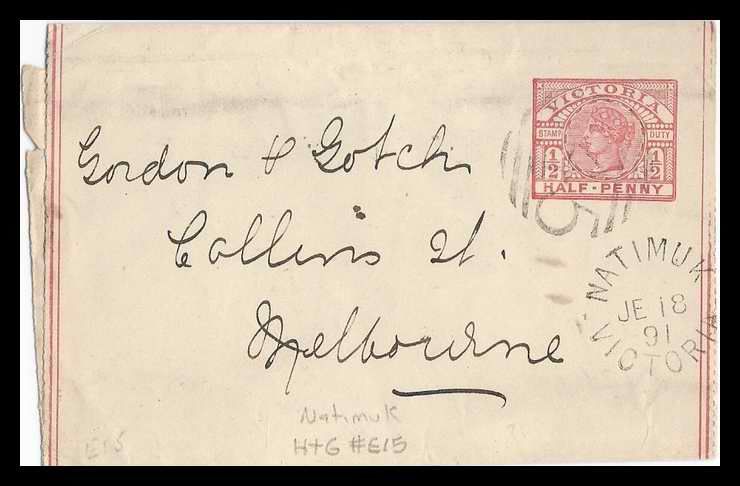 VICTORIA
STAMP DUTY
1/2 1/2
HALF-PENNY
Gordon & Gotch
Collins St.
Melbourne
NATIMUK
JE 18
91
VICTORIA
Natimuk
H+G #E15
E15